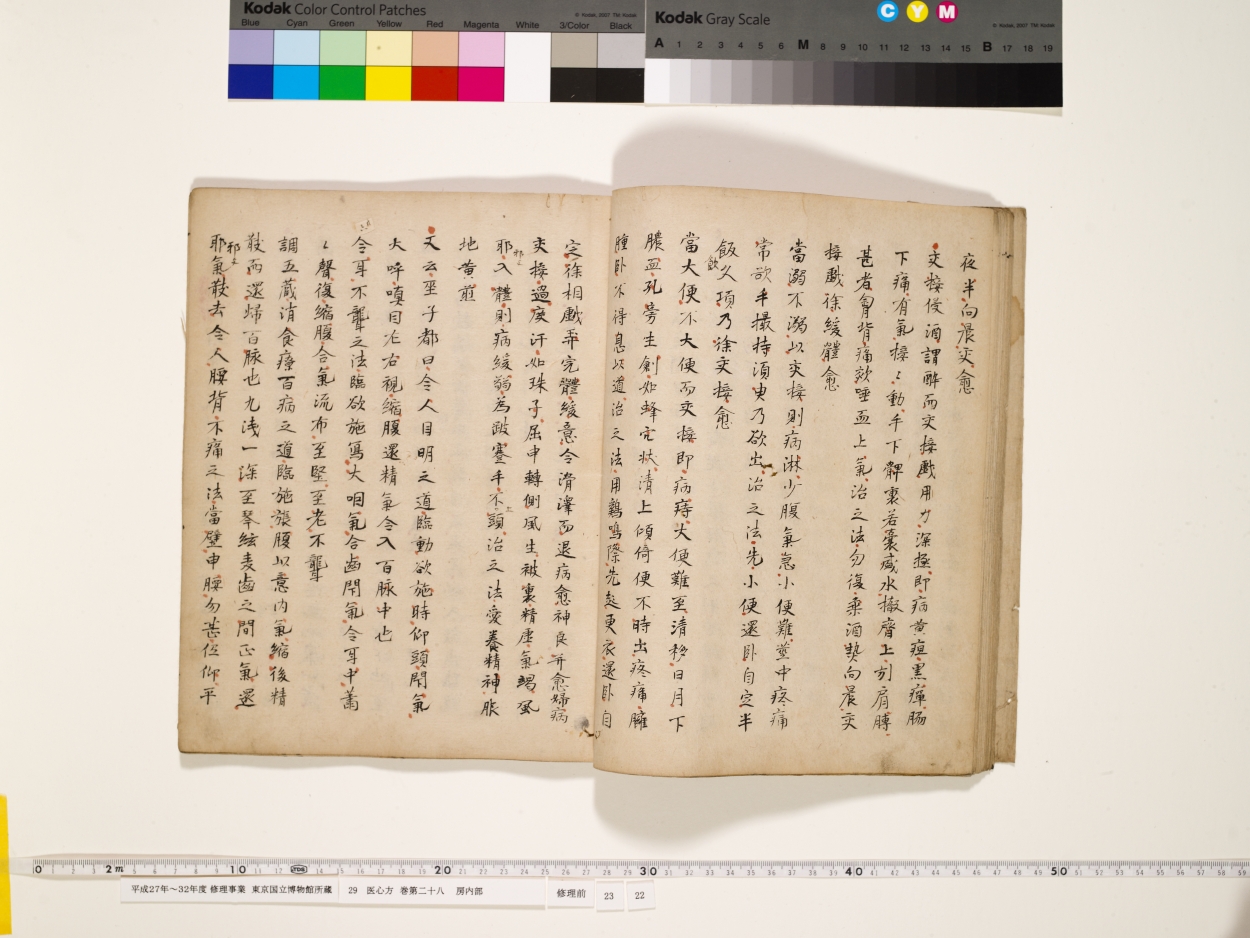 Kodak Color Control Patches
© Kodak, 2007 TM: Kodak
Blue Cyan Green Yellow Red Magenta White 3/Color Black
Kodak Gray Scale
C Y M
© Kodak, 2007 TM: Kodak
A 1 2 3 4 5 6 M 8 9 10 11 12 13 14 15 B 17 18 19
夜半向晨交愈
交接侵酒謂醉而交接戲用力深極即病黄疸黒癉脇
下痛有氣接〻動手下髀裏若囊盛水撤齊上引肩膊
甚者胷背痛欬唾血上氣治之法勿復乗酒熱向晨交
接戲徐緩體愈
當溺不溺以交接則病淋少腹氣急小便難莖中疼痛
常欲手撮持須臾乃欲出治之法先小便還卧自定半
飯久項乃徐交接愈
飲
當大便不大便而交接即病痔大便難至清移日月下
膿血孔旁生創如蜂穴狀清上傾倚便不時出疼痛臃
腫卧不得息以道治之法用鷄鳴際先起更衣還卧自
定徐相戲弄完體緩意令滑澤而退病愈神良并愈婦病
交接過度汗如珠子屈申轉側風生被裏精虛氣竭風
耶入體則病緩弱為跛蹇手不上頭治之法愛養精神服
邪〻
地黄煎
又云巫子都曰令人目明之道臨動欲施時仰頭閇氣
大呼嗔目左右視縮腹還精氣令入百脉中也
令耳不聾之法臨欲施寫大咽氣合齒閇氣令耳中蕭
〻聲復縮腹合氣流布至堅至老不聾
調五蔵消食療百病之道臨施張腹以意内氣縮後精
散而還歸百脉也九淺一深至琴絃麦齒之間正氣還
邪〻
耶氣散去令人腰背不痛之法當壁申腰勿甚伛仰平
0 1 2 3 4 5 6 7 8 9 10 2m 20 30 40 50
平成27年～32年度 修理事業 東京国立博物館所蔵
29 医心方 巻第二十八 房内部
修理前
23
22